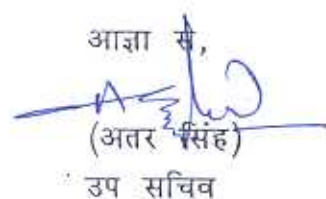 आज्ञा से,
(अतर सिंह)
उप सचिव